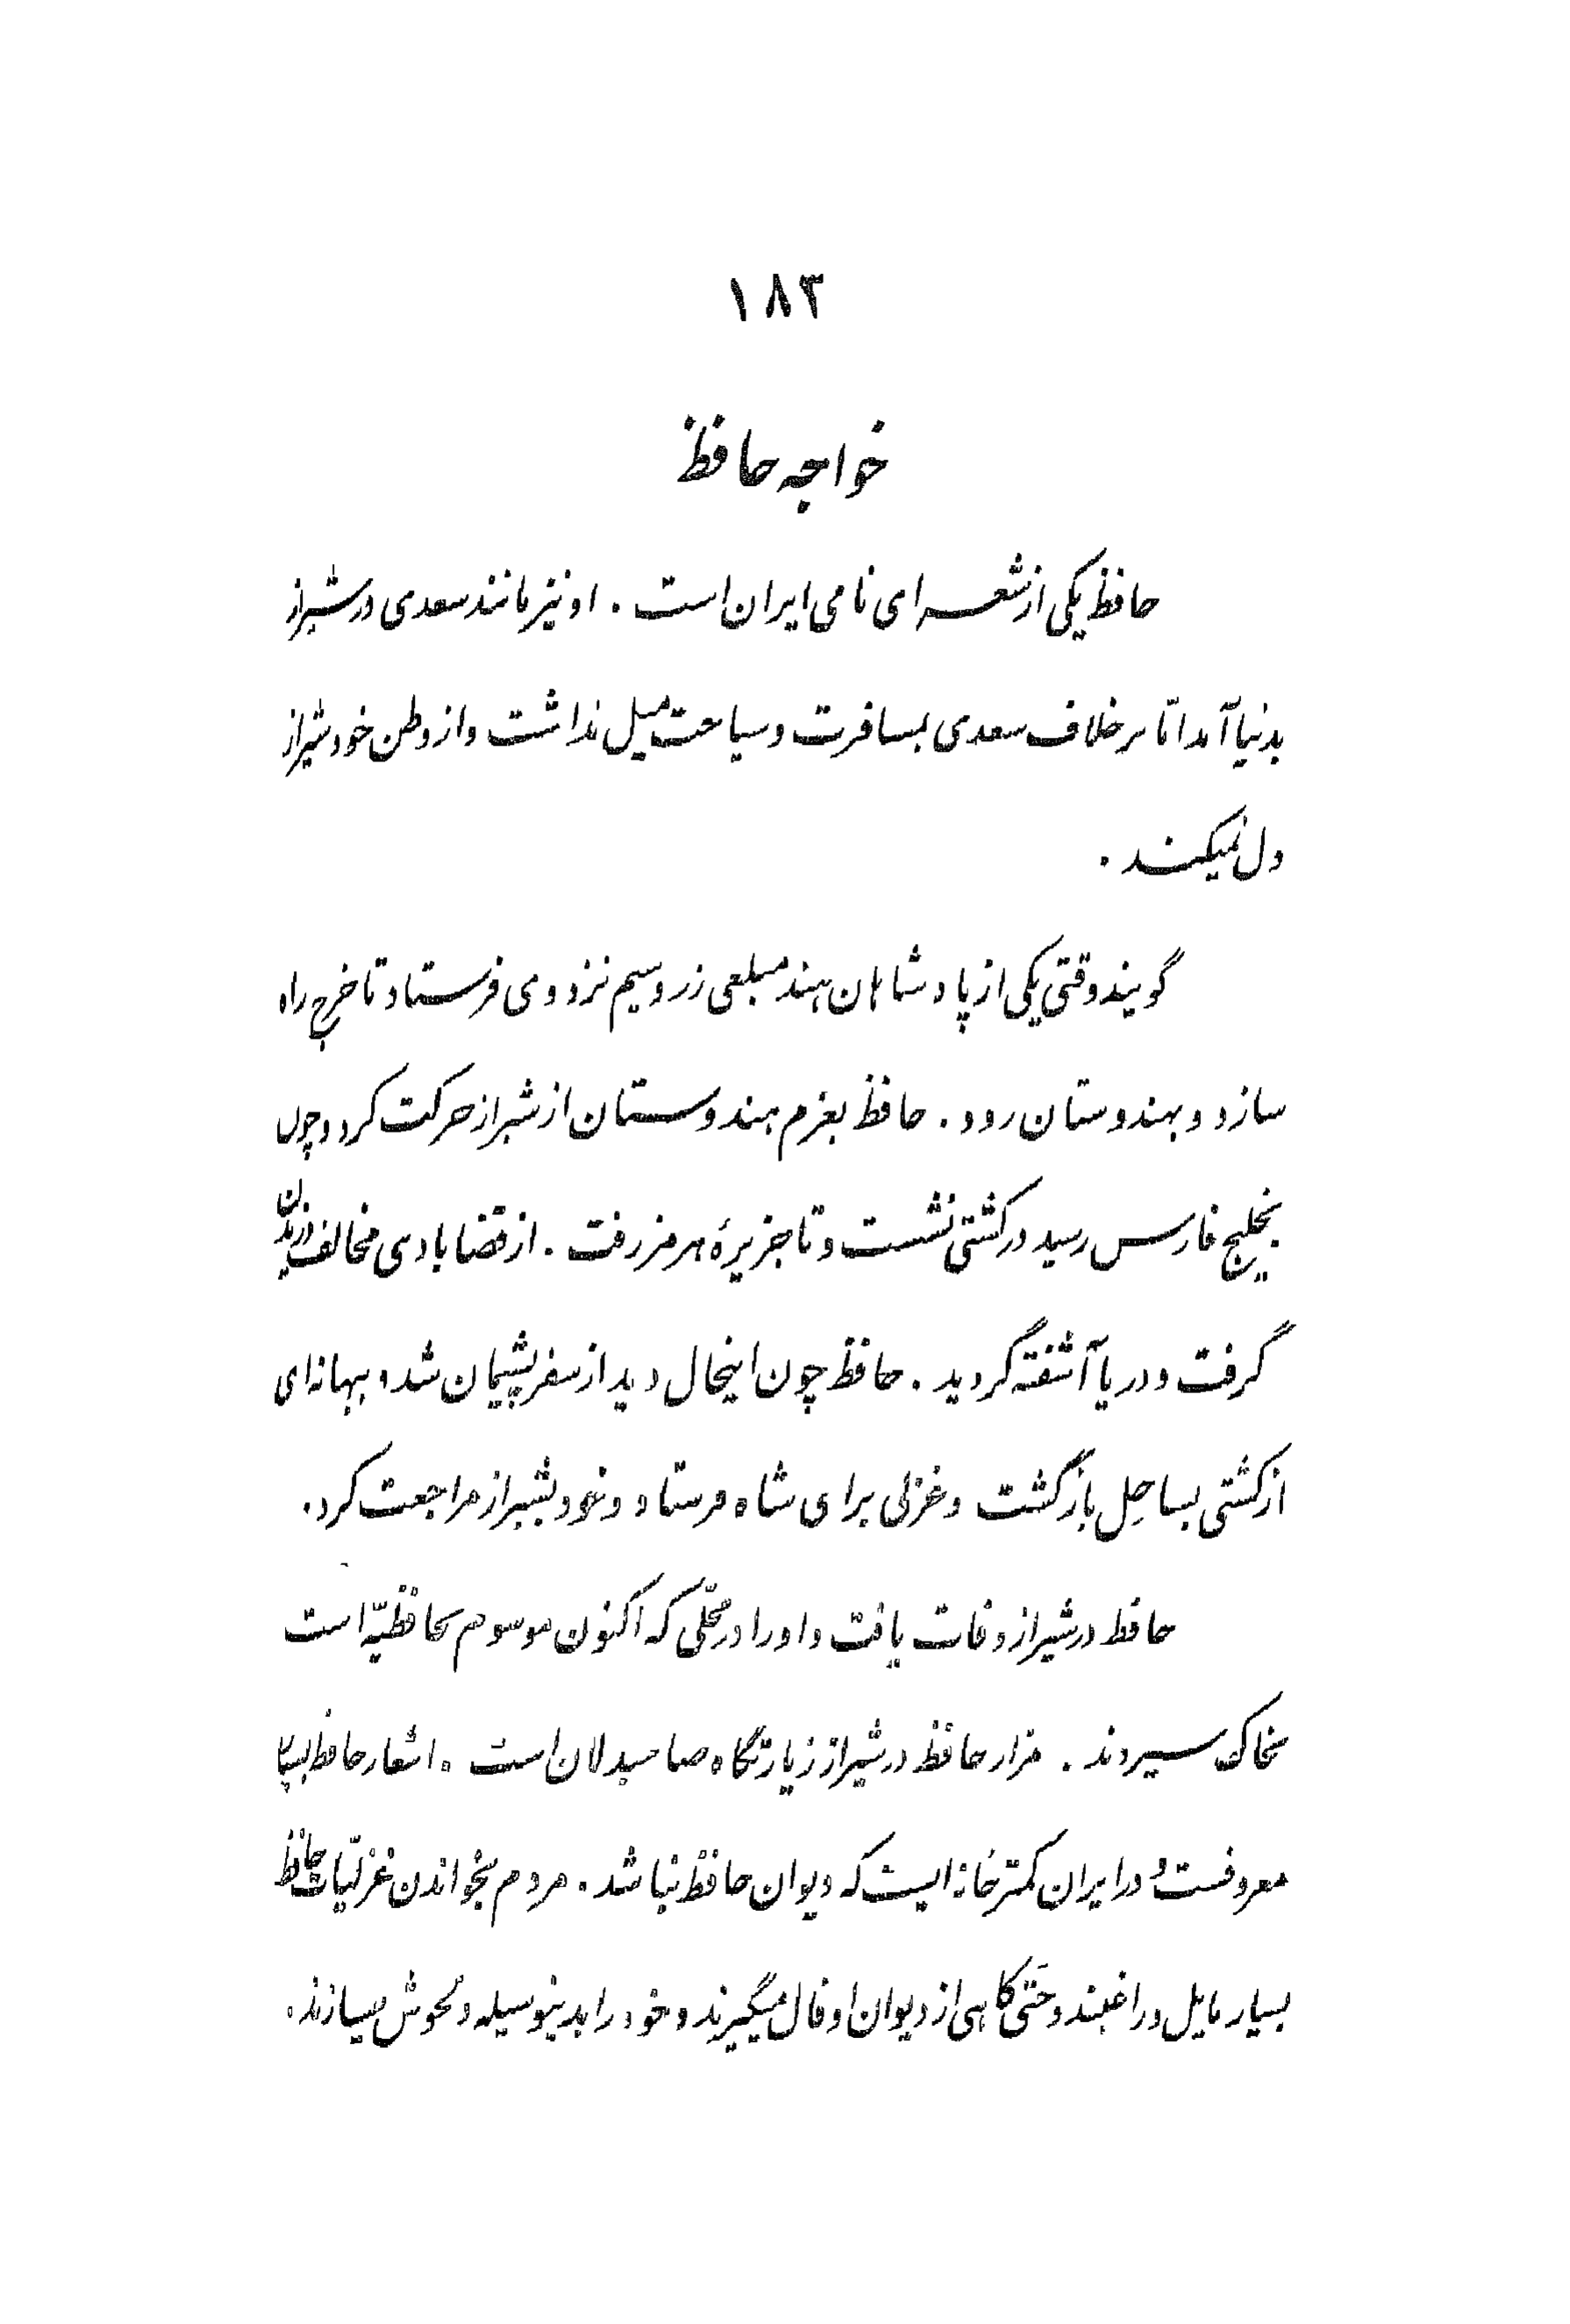 ۱۸۳
خواجه حافظ
حافظ یکی از شعرای نامی ایران است . او نیز مانند سعدی در شیراز
بدنیا آمد امّا برخلاف سعدی بمسافرت و سیاحت میل نداشت و از وطن خود شیراز
دل نمیکند .
گویند وقتی یکی از پادشاهان هند مبلغی زر و سیم نزد وی فرستاد تا خرج راه
سازد و بهندوستان رود . حافظ بعزم هندوستان از شیراز حرکت کرد و چون
بخلیج فارس رسید در کشتی نشست و تا جزیرهٔ هرمز رفت . از قضا بادی مخالف وزیدن
گرفت و دریا آشفته گردید . حافظ چون اینحال دید از سفر پشیمان شد و ببهانه‌ای
از کشتی بساحِل بازگشت و غزلی برای شاه فرستاد و خود بشیراز مراجعت کرد .
حافظ در شیراز وفات یافت و او را در محلّی که اکنون موسوم بحافظیّه است
بخاک سپردند . مزار حافظ در شیراز زیارتگاه صاحبدلان است . اشعار حافظ بسیار
معروفست و در ایران کمتر خانه ایست که دیوان حافظ نباشد . مردم بخواندن غزلیّات حافظ
بسیار مایل و راغبند و حَتّی گاهی از دیوان او فال میگیرند و خود را بدینوسیله دلخوش میسازند .